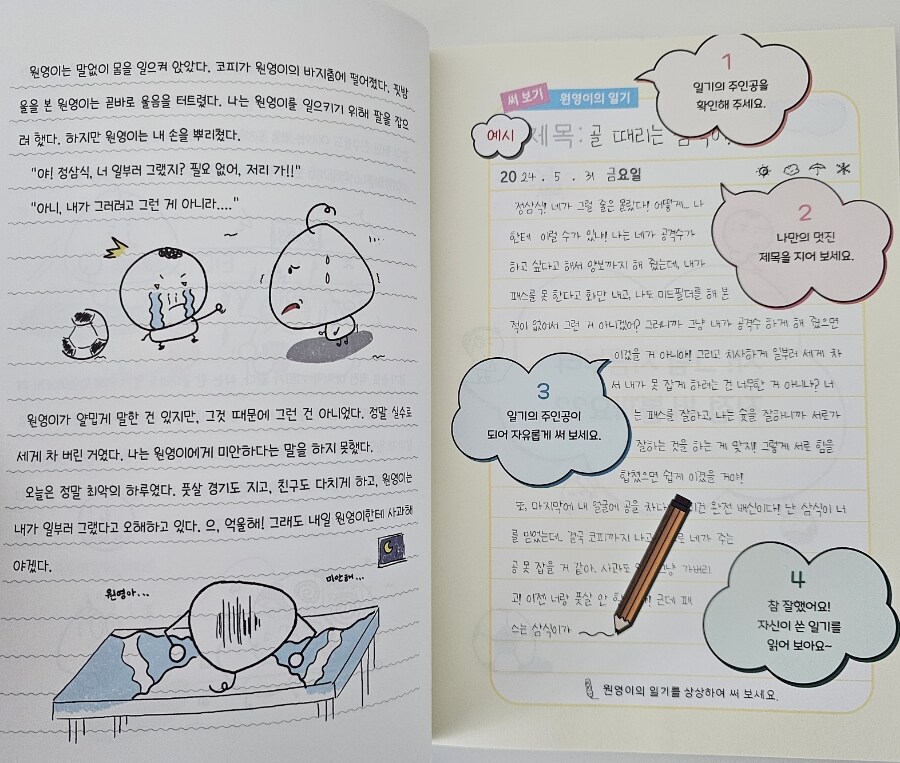 원영이는 말없이 몸을 일으켜 앉았다. 코피가 원영이의 바지춤에 떨어졌다. 핏방
울을 본 원영이는 곧바로 울음을 터트렸다. 나는 원영이를 일으키기 위해 팔을 잡으
려 했다. 하지만 원영이는 내 손을 뿌리쳤다.
"야! 정삼식, 너 일부러 그랬지? 필요 없어, 저리 가!!"
"아니, 내가 그러려고 그런 게 아니라...."
원영이가 얄밉게 말한 건 있지만, 그것 때문에 그런 건 아니었다. 정말 실수로
세게 차 버린 거였다. 나는 원영이에게 미안하다는 말을 하지 못했다.
오늘은 정말 최악의 하루였다. 풋살 경기도 지고, 친구도 다치게 하고, 원영이는
내가 일부러 그랬다고 오해하고 있다. 으, 억울해! 그래도 내일 원영이한테 사과해
야겠다.
원영아...
미안해...
써 보기 원영이의 일기
예시
제목: 골 때리는
2024. 5. 31 금요일
정삼식! 네가 그럴 줄은 몰랐다! 어떻게 나
한테 이럴 수가 있냐! 나는 네가 공격수가
하고 싶다고 해서 양보까지 해 줬는데, 내가
패스를 못 한다고 화만 내고, 나도 미드필더를 해 본
적이 없어서 그런 거 아니겠어? 그러니까 그냥 내가 공격수 하게 해 줬으면
이겼을 거 아니야! 그리고 치사하게 일부러 세게 차
서 내가 못 잡게 하려는 건 너무한 거 아니냐? 너
는 패스를 잘하고, 나는 슛을 잘하니까 서로가
잘하는 것을 하는 게 맞지! 그렇게 서로 힘을
합쳤으면 쉽게 이겼을 거야!
또, 마지막에 내 얼굴에 공을 차다 건 완전 배신이다! 난 삼식이 너
를 믿었는데 결국 코피까지 나고 네가 주는
공 못 잡을 거 같아. 사과도 가버리
고! 이젠 너랑 풋살 안 근데 패
스는 삼식이가
원영이의 일기를 상상하여 써 보세요.
1
일기의 주인공을
확인해 주세요.
2
나만의 멋진
제목을 지어 보세요.
3
일기의 주인공이
되어 자유롭게 써 보세요.
4
참 잘했어요!
자신이 쓴 일기를
읽어 보아요~